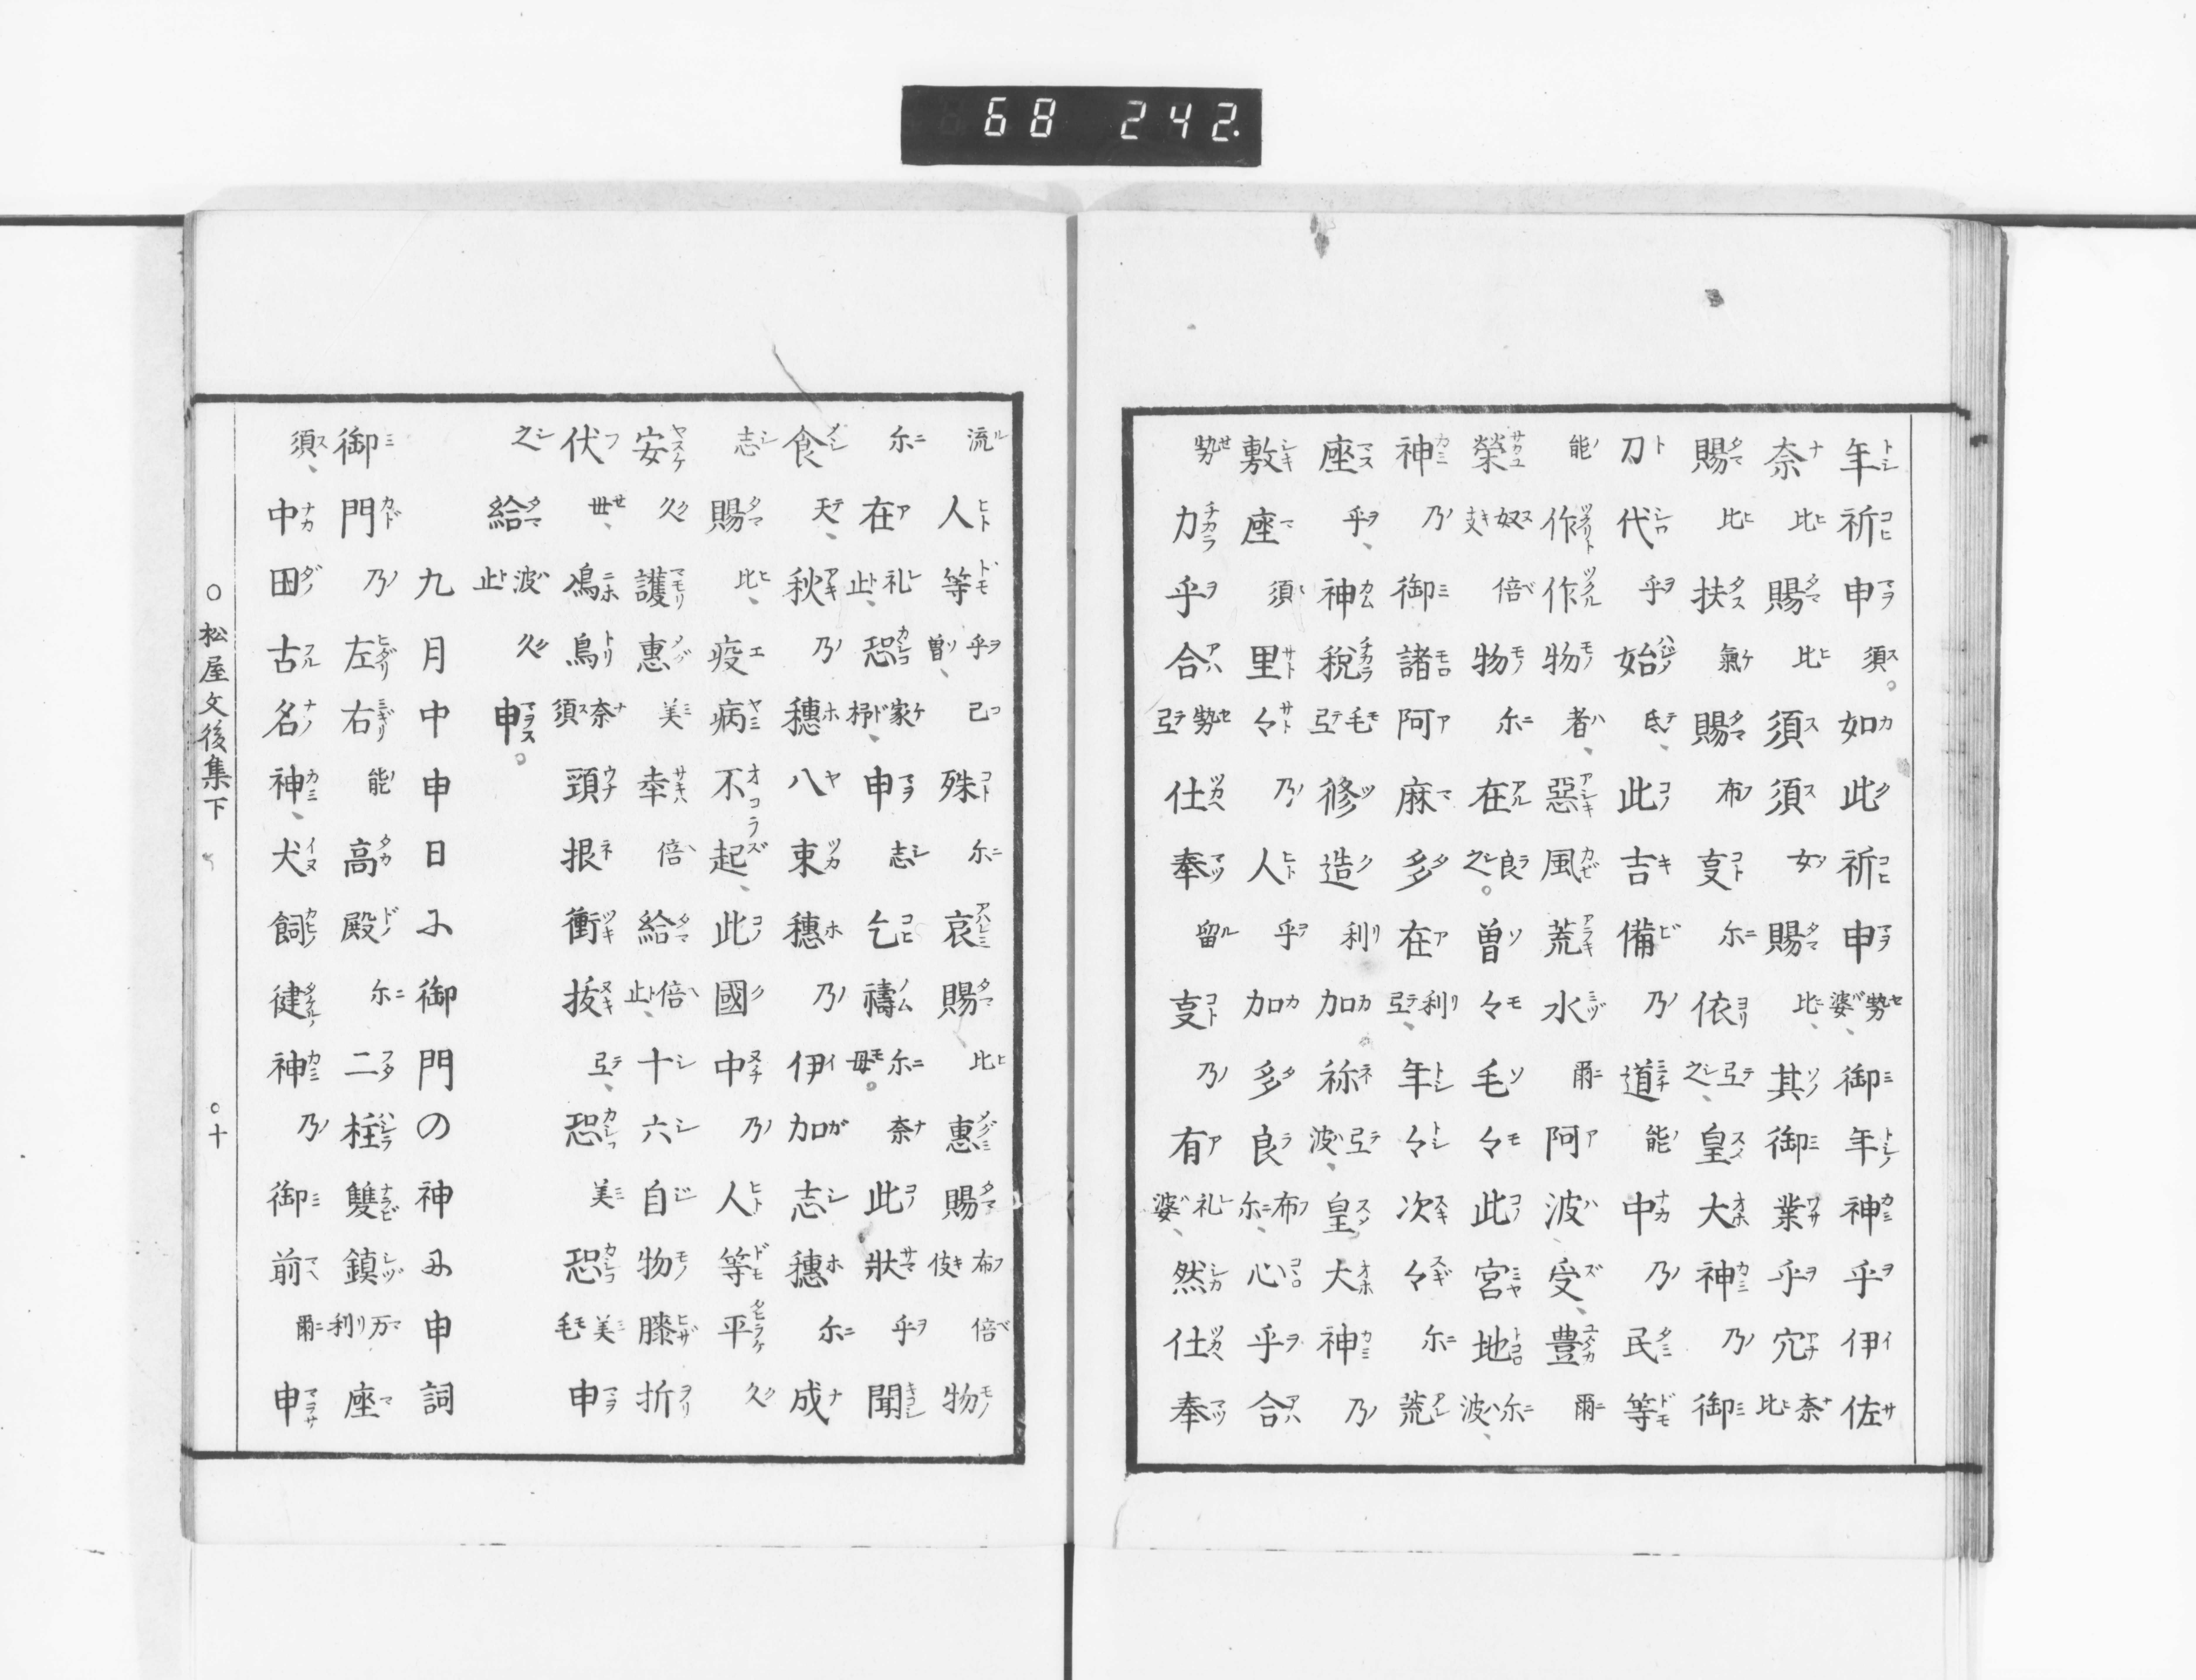 68 242.
年祈申須。如此祈申勢婆、御年神乎伊佐
奈比賜比須須女賜比、其御業乎穴奈比
賜比扶氣賜布㕝尓依弖之皇大神乃御
刀代乎始氐、此吉備乃道能中乃民等
能作作物者、惡風荒水爾阿波受、豊爾
榮奴支倍物尓在良之。曽々毛々此宮地尓波、
神乃御諸阿麻多在利弖、年々次々尓荒
座乎、神税毛弖修造利加祢弖波、皇大神乃
敷座須里々乃人乎加多良布尓、心乎合
勢力乎合勢弖仕奉留㕝乃有礼婆、然仕奉
流人等乎曽、己殊尓哀賜比惠賜布伎倍物
尓在礼止、恐家杼、申志乞禱尓毋。奈此狀乎聞
食天、秋乃穗八束穗乃伊加志穗尓成
志賜比、疫病不起、此國中乃人等平久
安久護惠美幸倍給倍止、十六自物膝折
伏丗、鳰鳥奈須頚根衝拔弖、恐美恐美毛申
之給波止久申。
九月中申日に御門の神に申詞
御門乃左右能高殿尓二柱雙鎮万利座
須、中田古名神、犬飼健神乃御前爾申
○松屋文後集下 ○十